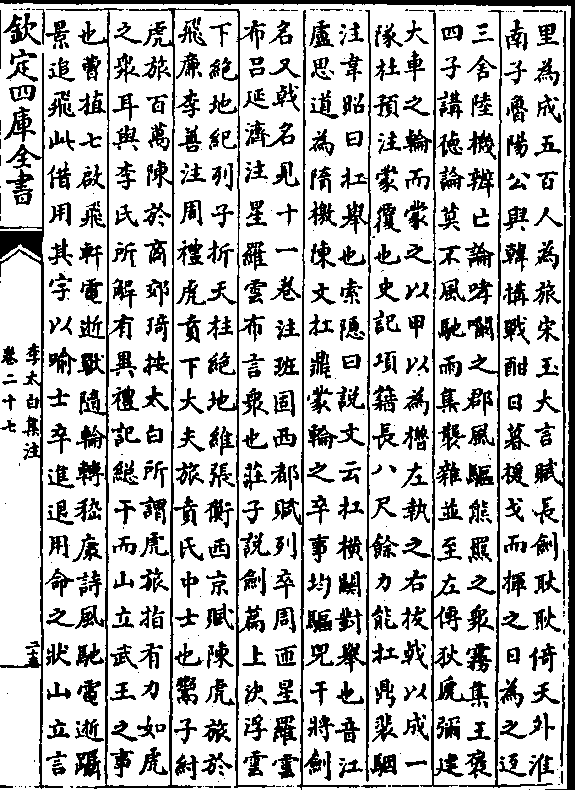 里為成五百人為旅宋玉大言賦長劍耿耿倚天外淮
南子魯陽公與韓構戰酣日暮援戈而揮之日為之返
三舍陸機辨亡論哮闞之郡風驅熊羆之衆霧集王褒
四子講徳論莫不風馳而集襲雜並至左傳狄虒彌建
大車之輪而蒙之以甲以為櫓左執之右拔戟以成一
隊杜預注蒙覆也史記項籍長八尺餘力能扛鼎裴駰
注韋昭曰扛舉也索隠曰說文云扛橫關對舉也音江
盧思道為隋檄陳文扛鼎蒙輪之卒事均驅兕干將劍
名又戟名見十一卷注班固西都賦列卒周匝星羅雲
布呂延濟注星羅雲布言衆也莊子說劍篇上決浮雲
下絶地紀列子折天柱絶地維張衡西京賦陳虎旅於
飛廉李善注周禮虎賁下大夫旅賁氏中士也鬻子紂
虎旅百萬陳於商郊琦按太白所謂虎旅指有力如虎
之衆耳與李氏所解有異禮記緫干而山立武王之事
也曹植七啟飛軒電逝獸隨輪轉嵇康詩風馳電逝躡
景追飛此借用其字以喻士卒進退用命之狀山立言
欽定四庫全書
李太白集注
卷二十七
二五